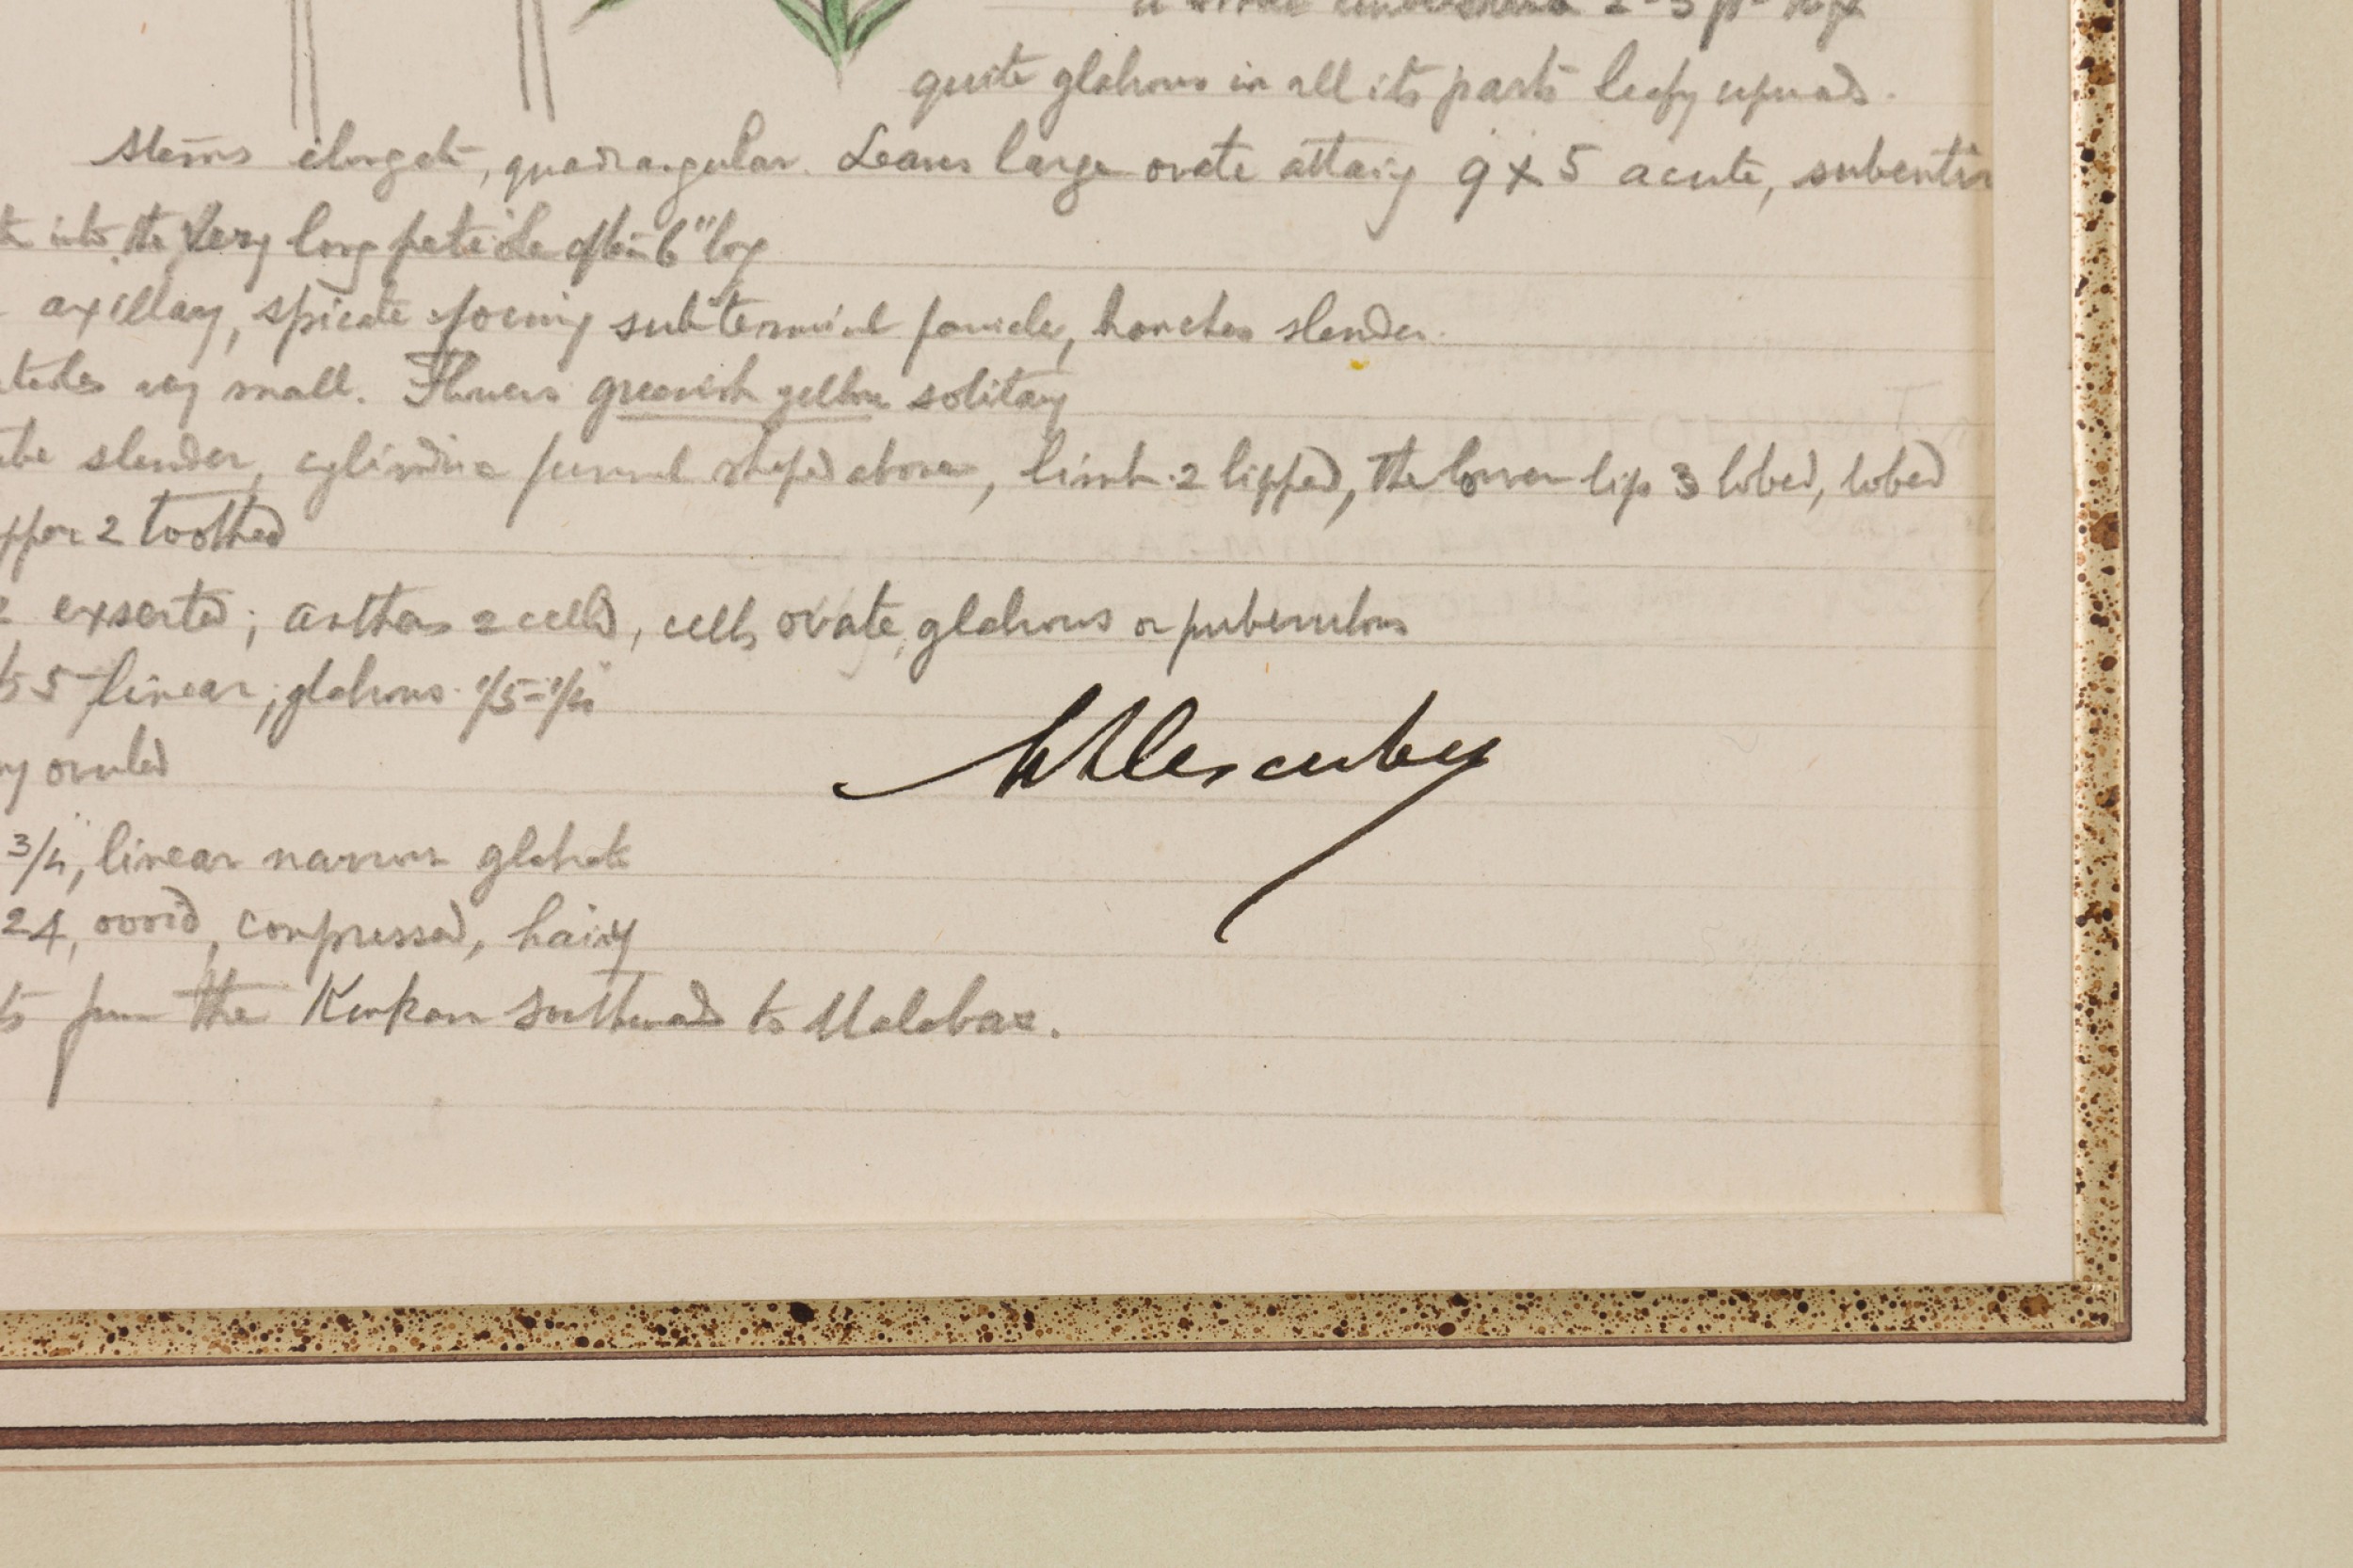 a small undershrub 2-3 ft high
quite glabrous in all its parts leafy upwards.
Stems elongate, quadrangular. Leaves large ovate attaing 9 x 5 acute, subentir
into the very long petiole often 6" long
axillary, spicate forming subterminal panicles, branches slender.
very small. Flowers greenish yellow solitary
slender, cylindric funnel shaped above, limb 2 lipped, the lower lip 3 lobed, lobed
2 toothed
2 exserted; anthers 2 celled, cells ovate, glabrous or puberulous
5 linear, glabrous 1/5-
ovuled
3/4, linear narrow glabrate
24, ovoid, compressed, hairy
from the Konkan southwards to Malabar.